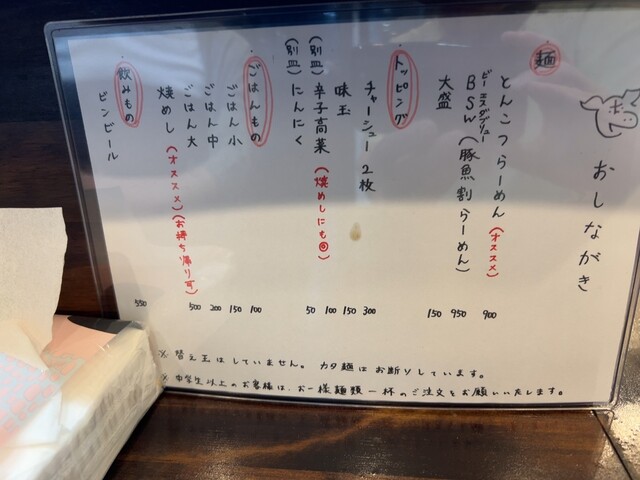 おしながき
麺
とんこつらーめん (オススメ) 900
ビーエスダブリュー
BSW (豚魚割らーめん) 950
大盛 150
トッピング
チャーシュー 2枚 300
味玉 150
(別皿) 辛子高菜 (焼めしにも◎) 100
(別皿) にんにく 50
ごはんもの
ごはん小 100
ごはん中 150
ごはん大 200
焼めし (オススメ) (お持ち帰り可) 500
飲みもの
ビンビール 550
※ 替え玉はしていません。カタ麺はお断りしています。
※ 中学生以上のお客様は、お一様麺類一杯のご注文をお願いいたします。